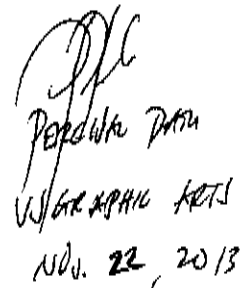 PERCIVAL DATU
VS GRAPHIC ARTS
NOV. 22, 2013